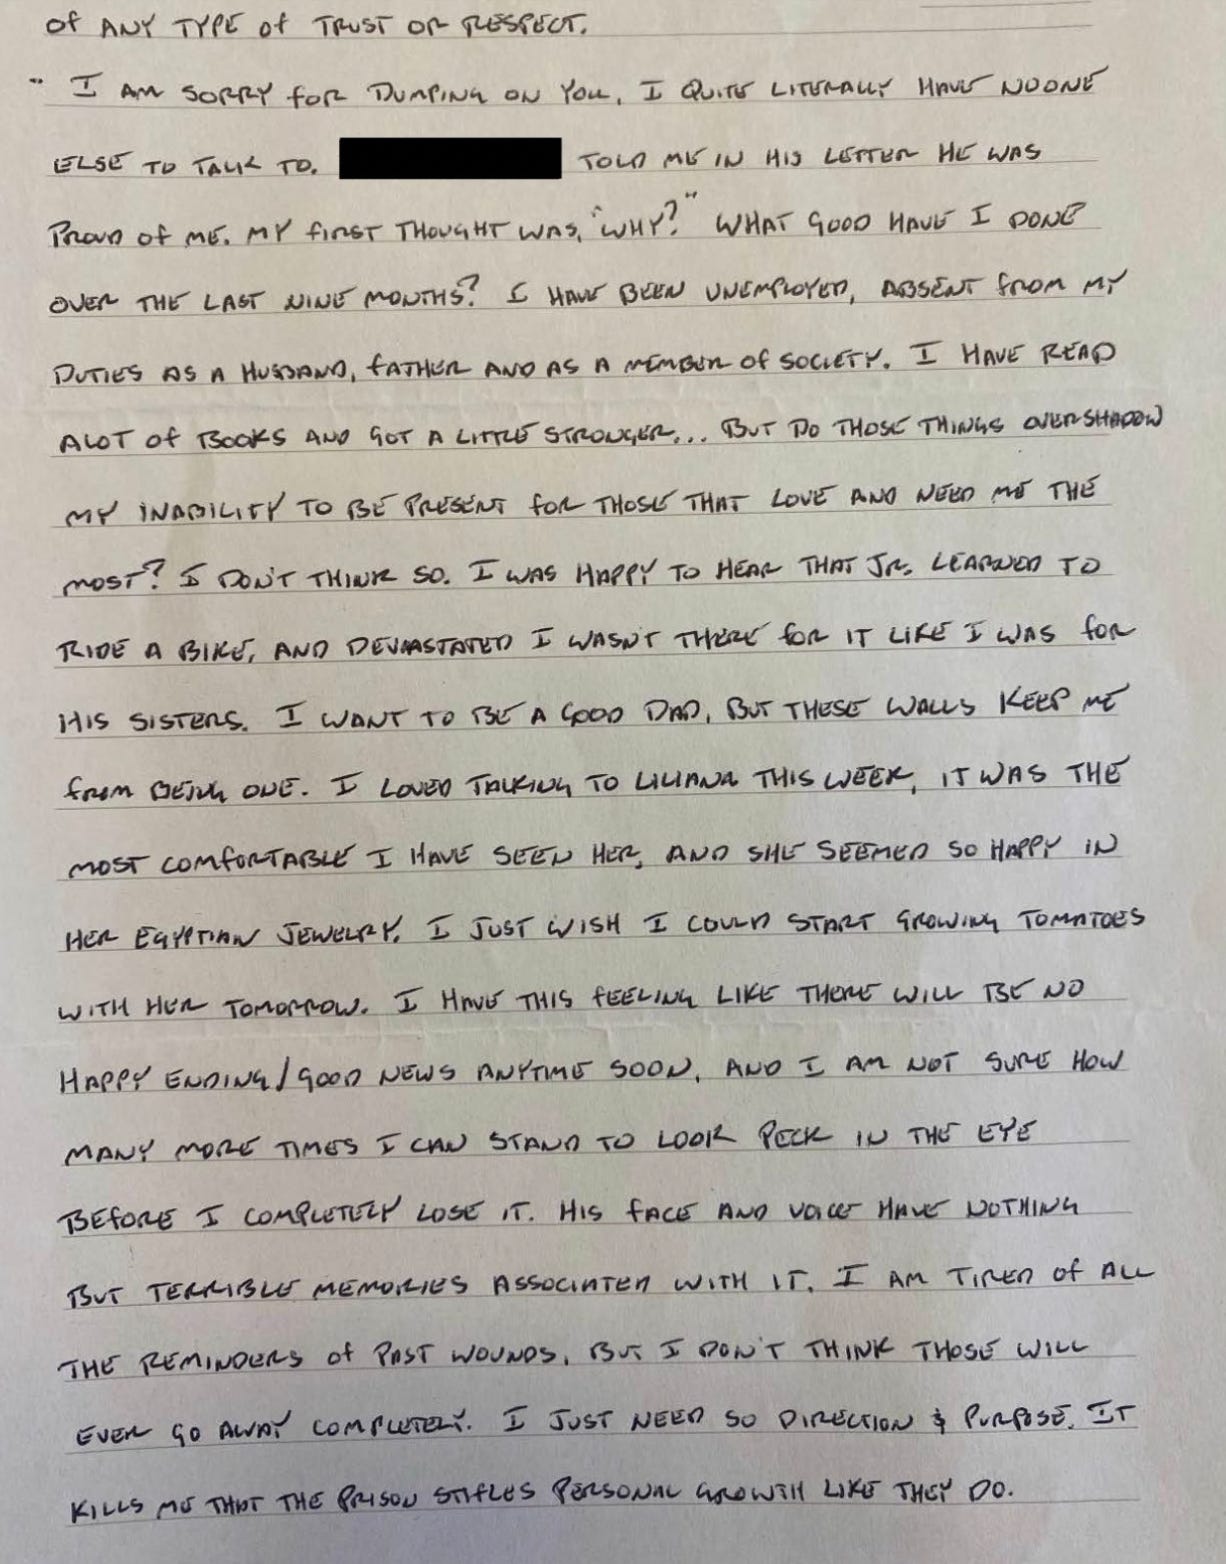 of ANY TYPE of TRUST OR RESPECT.
" I AM SORRY for DUMPING ON YOU, I QUITE LITERALLY HAVE NOONE
ELSE TO TALK TO. TOLD ME IN HIS LETTER HE WAS
PROUD of ME. MY fIRST THOUGHT WAS, "WHY?" WHAT GOOD HAVE I DONE
OVER THE LAST NINE MONTHS? I HAVE BEEN UNEMPLOYED, ABSENT fROM MY
DUTIES AS A HUSBAND, fATHER AND AS A MEMBER Of SOCIETY. I HAVE READ
ALOT Of BOOKS AND GOT A LITTLE STRONGER... BUT DO THOSE THINGS OVERSHADOW
MY INABILITY TO BE PRESENT fOR THOSE THAT LOVE AND NEED ME THE
MOST? I DON'T THINK SO. I WAS HAPPY TO HEAR THAT JR. LEARNED TO
RIDE A BIKE, AND DEVASTATED I WASN'T THERE fOR IT LIKE I WAS fOR
HIS SISTERS. I WANT TO BE A GOOD DAD, BUT THESE WALLS KEEP ME
fROM BEING ONE. I LOVED TALKING TO LILIANA THIS WEEK, IT WAS THE
MOST COMfORTABLE I HAVE SEEN HER, AND SHE SEEMED SO HAPPY IN
HER EGYPTIAN JEWELRY. I JUST WISH I COULD START GROWING TOMATOES
WITH HER TOMORROW. I HAVE THIS fEELING LIKE THERE WILL BE NO
HAPPY ENDING/GOOD NEWS ANYTIME SOON, AND I AM NOT SURE HOW
MANY MORE TIMES I CAN STAND TO LOOK PECK IN THE EYE
BEFORE I COMPLETELY LOSE IT. HIS fACE AND VOICE HAVE NOTHING
BUT TERRIBLE MEMORIES ASSOCIATED WITH IT. I AM TIRED Of ALL
THE REMINDERS Of PAST WOUNDS, BUT I DON'T THINK THOSE WILL
EVER GO AWAY COMPLETELY. I JUST NEED SO DIRECTION & PURPOSE. IT
KILLS ME THAT THE PRISON STIFLES PERSONAL GROWTH LIKE THEY DO.